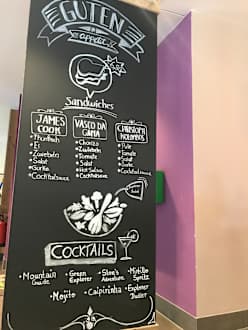 GUTEN
appetit
Sandwiches
JAMES COOK
Thunfisch
Ei
Zwiebeln
Salat
Gurke
Cocktailsauce
VASCO DA GAMA
Chorizo
Zwiebeln
Tomate
Salat
Hot Salsa
Cocktailsauce
CHRISTOPH KOLUMBUS
Pute
Tomate
Salat
Gurke
Cocktailsauce
COCKTAILS
Mountain
Green Explorer
Adventure
Mirtillo Spritz
Mojito
Caipirinha
Explorer